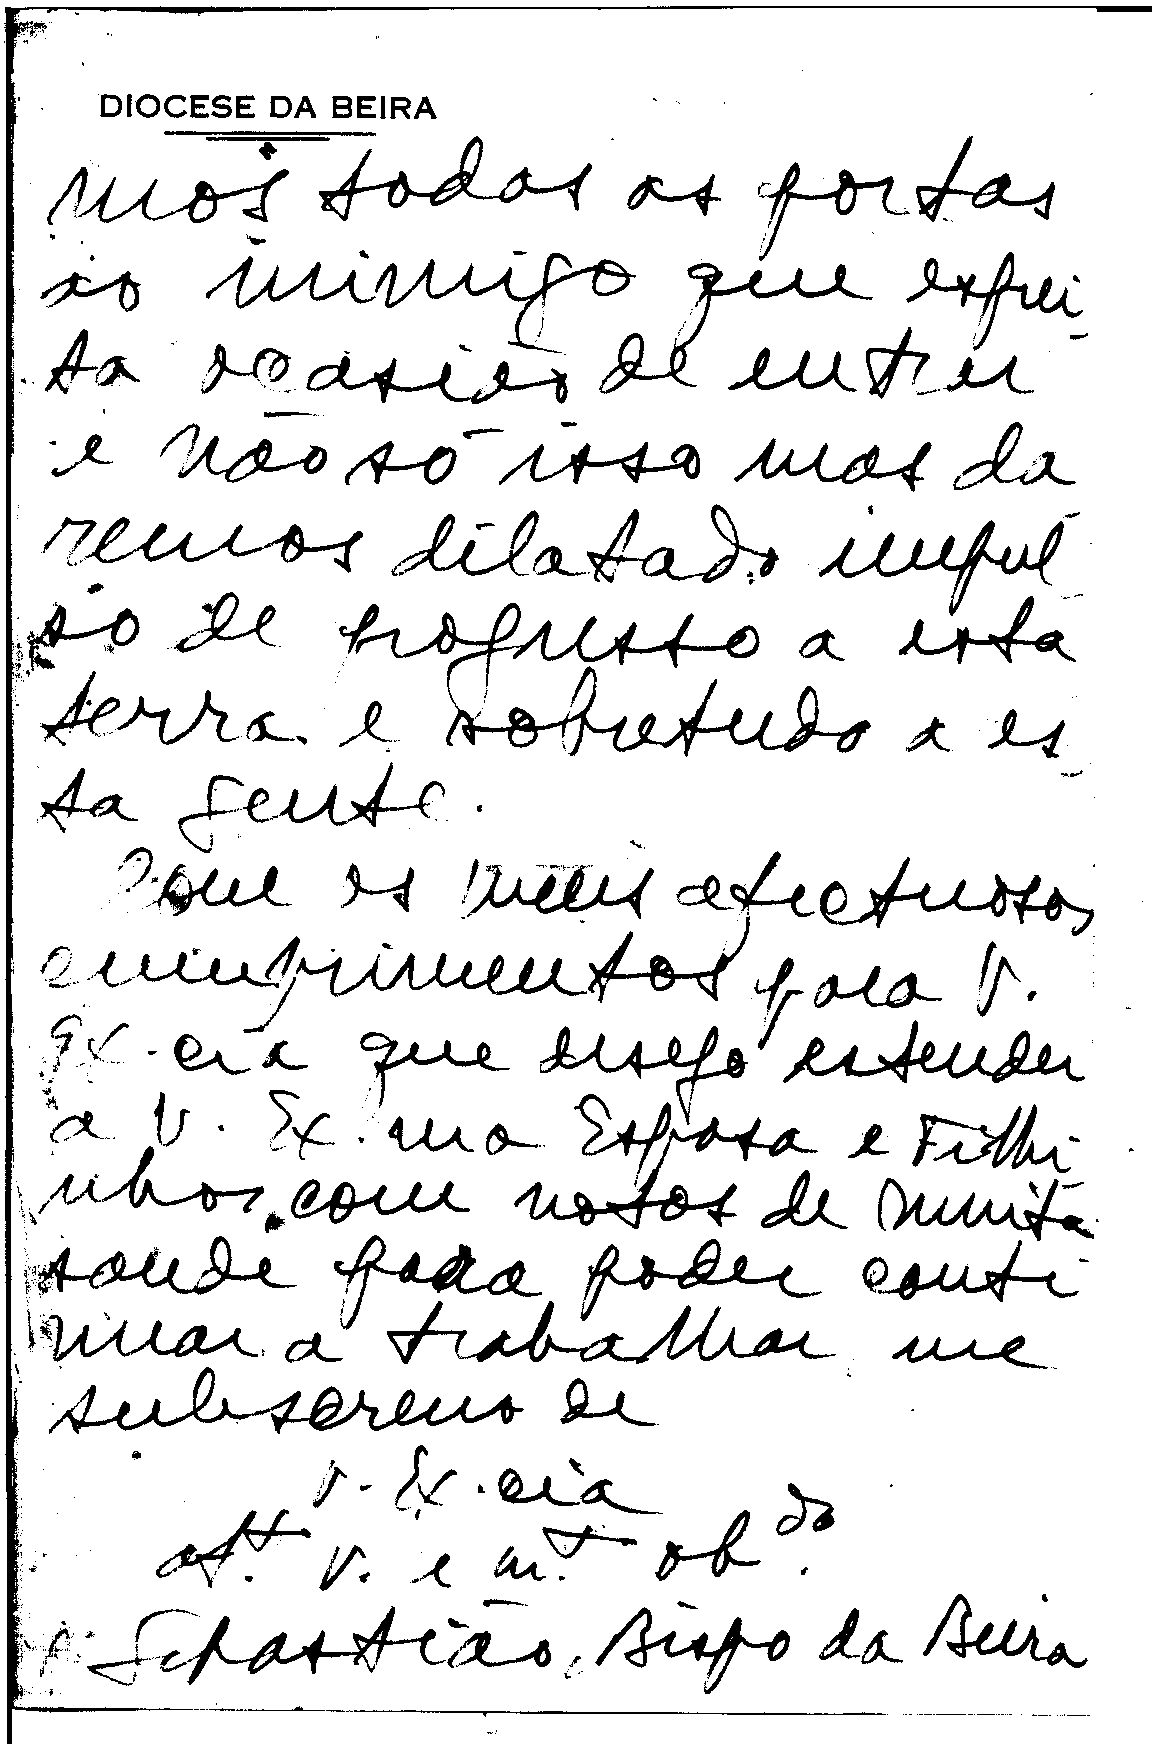 DIOCESE DA BEIRA
mos todas as portas
ao inimigo que esprei-
ta ocasião de entrar
e não só isso mas da
remos dilatado impul-
so de progresso a esta
terra e sobretudo a es-
ta gente.
Com os meus afectuosos
cumprimentos para V.
Ex.cia que desejo estender
a V. Ex.ma Esposa e Filhi-
nhos, com votos de muita
saude para poder conti-
nuar a trabalhar me
subscrevo de
V. Ex.cia
att.º V. e m.tº ob.do
Sebastião, Bispo da Beira